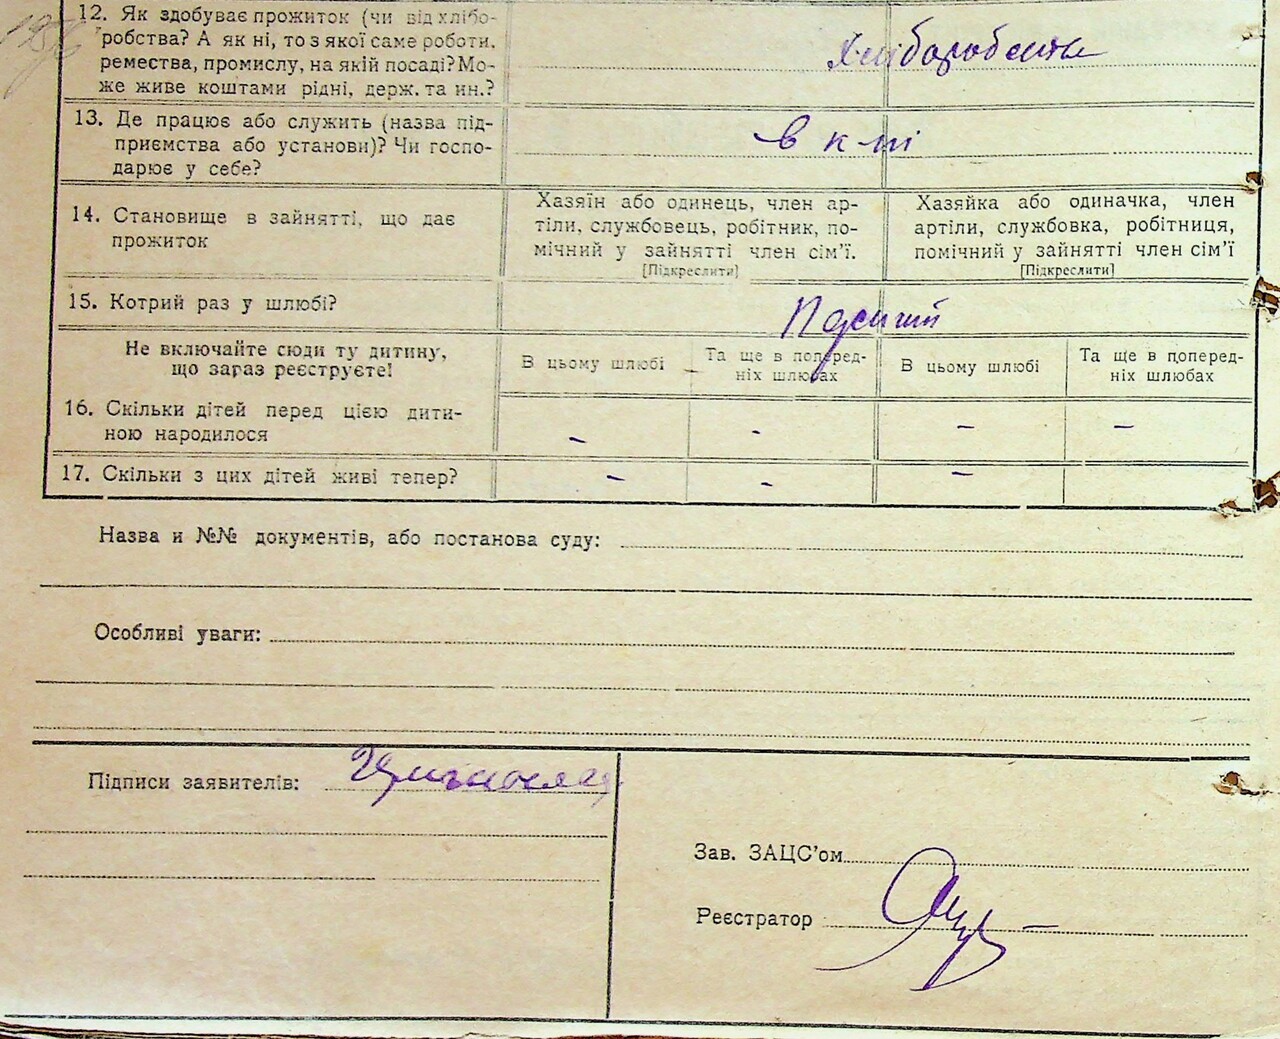 12. Як здобуває прожиток (чи від хлібо-
робства? А як ні, то з якої саме роботи,
ремества, промислу, на якій посаді? Мо-
же живе коштами рідні, держ. та ин.?
Хліборобства
13. Де працює або служить (назва під-
приємства або установи)? Чи госпо-
дарює у себе?
в к
14. Становище в зайнятті, що дає
прожиток
Хазяїн або одинець, член ар-
тіли, службовець, робітник, по-
мічний у зайнятті член сім'ї.
[Підкреслити]
Хазяйка або одиначка, член
артіли, службовка, робітниця,
помічний у зайнятті член сім'ї
[Підкреслити]
15. Котрий раз у шлюбі?
Перший
Не включайте сюди ту дитину,
що зараз реєструєте!
В цьому шлюбі
Та ще в поперед-
ніх шлюбах
В цьому шлюбі
Та ще в поперед-
ніх шлюбах
16. Скільки дітей перед цією дити-
ною народилося
- - - -
17. Скільки з цих дітей живі тепер?
- - -
Назва и №№ документів, або постанова суду:
Особливі уваги:
Підписи заявителів:
Зав. ЗАЦС'ом
Реєстратор